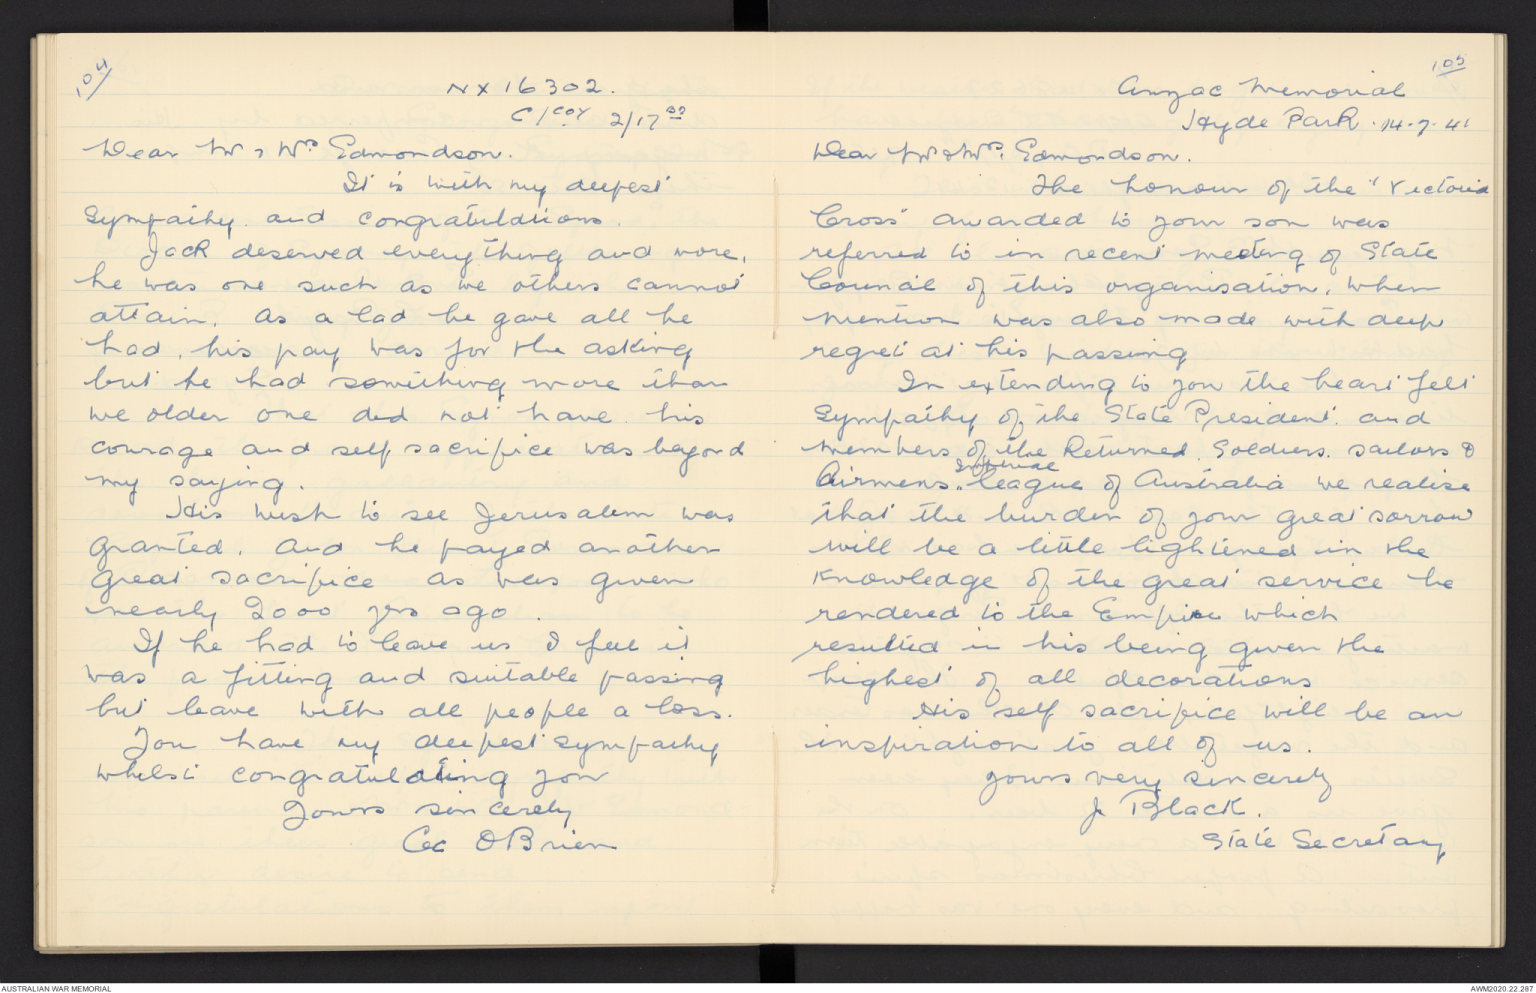 104/
NX 16302.
C/Coy 2/17 Bn
Dear Mr & Mrs Edmondson.
It is with my deepest
sympathy and congratulations.
Jack deserved everything and more,
he was one such as we others cannot
attain. As a lad he gave all he
had, his pay was for the asking
but he had something more than
we older one did not have. his
courage and self sacrifice was beyond
my saying.
His wish to see Jerusalem was
granted. And he payed another
great sacrifice as was given
nearly 2000 yrs ago.
If he had to leave us I feel it
was a fitting and suitable passing
but leave with all people a loss.
You have my deepest sympathy
whilst congratulating you
Yours sincerely
Cec O'Brien
105
Anzac Memorial
Hyde Park. 14.7.41
Dear Mr & Mrs. Edmondson.
The honour of the "Victoria
Cross" awarded to your son was
referred to in recent meeting of State
Council of this organisation, when
mention was also made with deep
regret at his passing
In extending to you the heart felt
sympathy of the State President and
members of the Returned Soldiers. sailors &
Airmens. Imperial League of Australia we realise
that the burden of your great sorrow
will be a little lightened in the
knowledge of the great service he
rendered to the Empire which
resulted in his being given the
highest of all decorations
His self sacrifice will be an
inspiration to all of us.
yours very sincerely
J. Black.
State Secretary
AUSTRALIAN WAR MEMORIAL
AWM2020.22.287